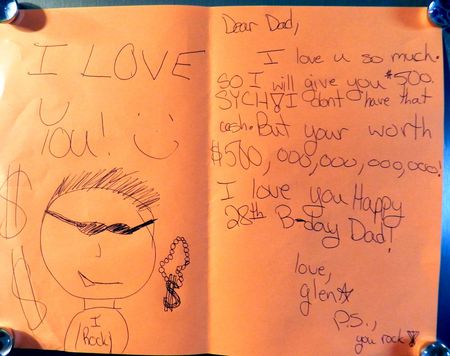 I LOVE
You!
$
$
I
Rock
Dear Dad,
I love u so much.
SO I will give you $500.
SYCH! I dont have that
cash. But your worth
$500,000,000,000,000!
I love you Happy
28th B-day Dad!
love,
glen
P.S.,
you rock!